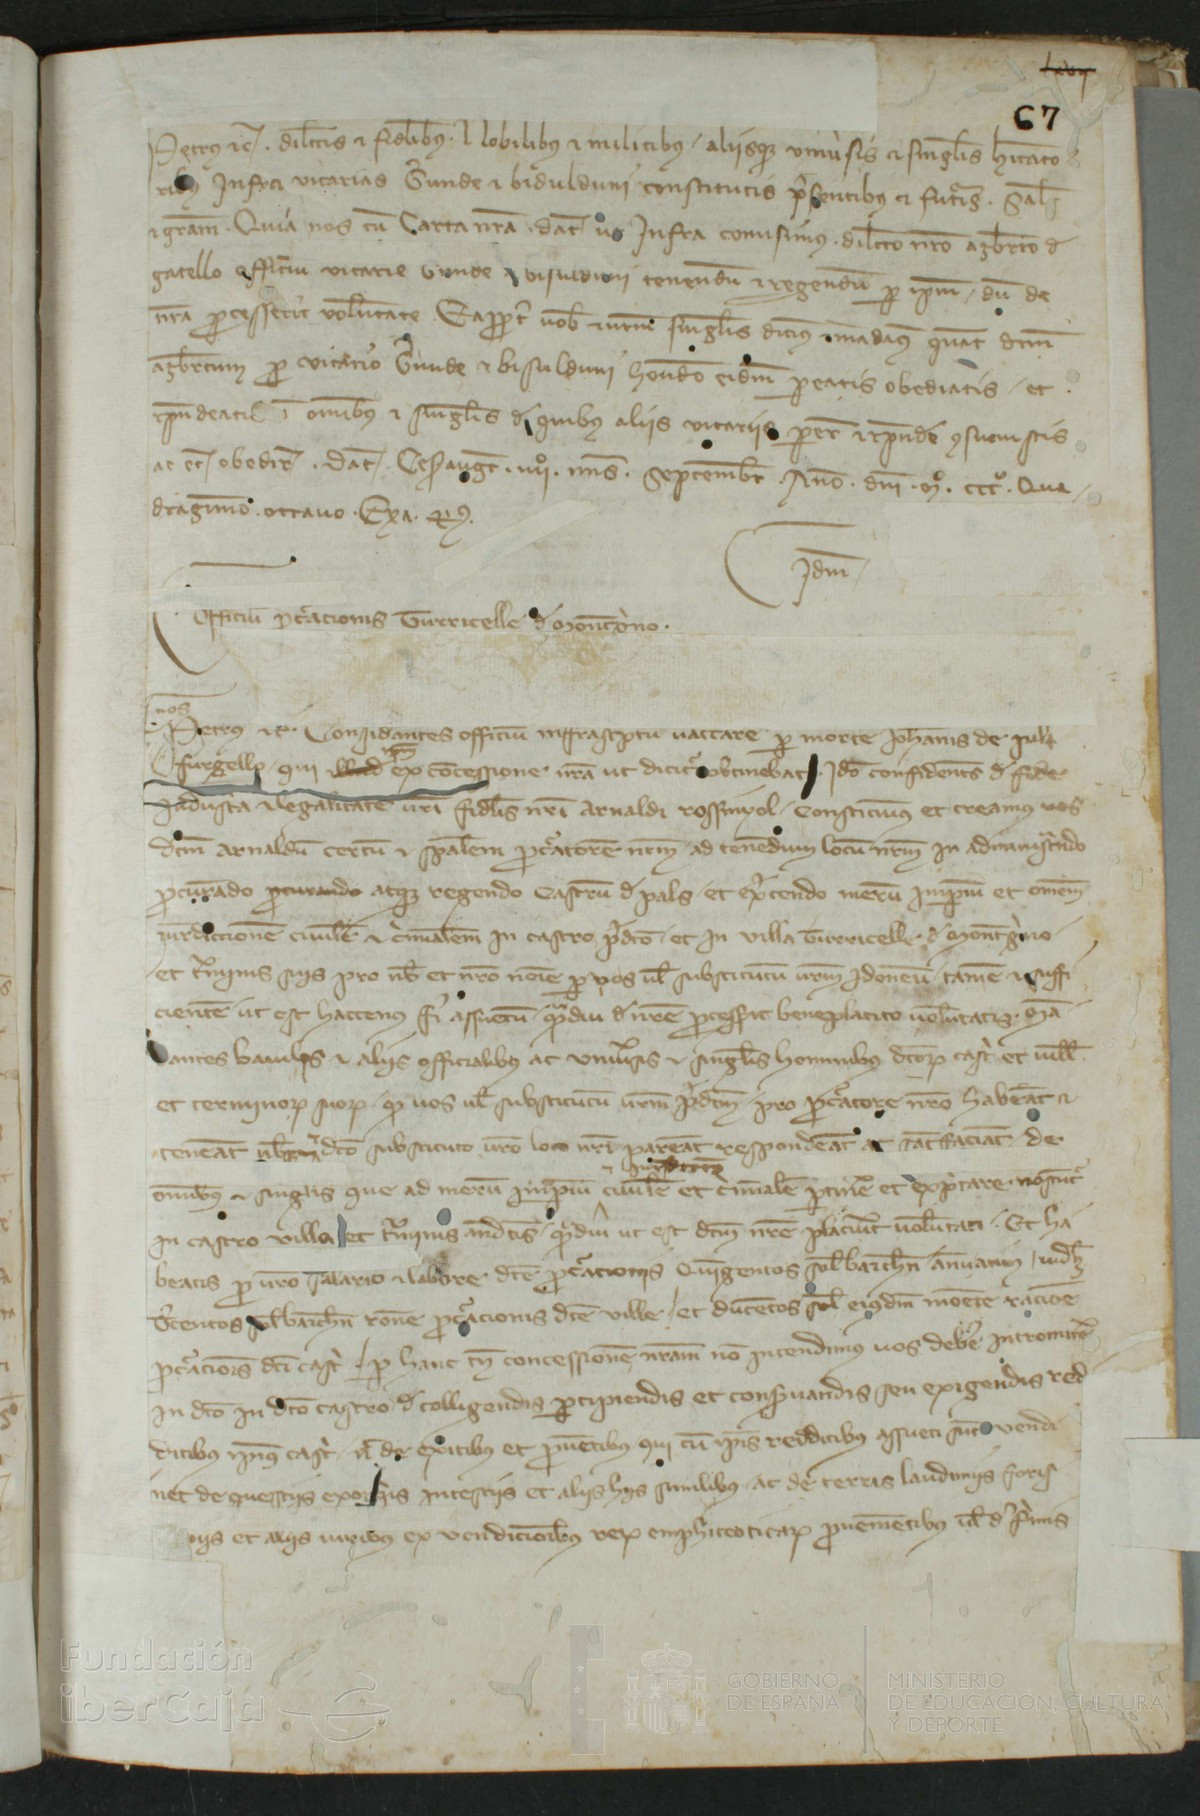 lxvij
67
Petrus etc. dilectis et fidelibus Nobilibus et militibus aliisque universis et singulis habitato
ribus Infra vicarias Gerunde et bisulduni constitutis presentibus et futuris. Salutem
et gratiam. Quia nos cum Carta nostra dat. ut Infra comisimus dilecto nostro azberto de
gatello officium vicarie Gerunde et bisulduni tenendum et regendum per ipsum dum de
nostra processerit voluntate. Eapropter vobis et vestrum singulis dicimus et mandamus quatenus dictum
azbertum pro vicario Gerunde et bisulduni habendo eidem pareatis obediatis et
respondeatis in omnibus et singulis de quibus aliis vicariis parere et respondere consuevistis
ac etiam obedire. Dat. Cesarauguste. nonas Septembris. Anno. domini. Mo. CCCo. Qua
dragesimo. octavo. Exa. R.
Idem
Officium procurationis Turricelle de Montegrino.
nos
Petrus etc. Considerantes officium infrascriptum vaccare per morte Johannis de
furgello qui illud ex concessione nostra ut dicitur obtinebat. Ideo confidentes de fide
Industria et legalitate vestri fidelis nostri Arnaldi rossinyol. Constituimus et creamus vos
dictum Arnaldum certum et specialem procuratorem nostrum ad tenendum locum nostrum in administrando
procurando procurando atque regendo Castrum de pals et exercendo merum imperium et omnem
iurisdictionem civilem et criminalem in castro predicto et in villa Turricelle de Montegrino
et terminis suis pro nobis et nostro nomine per vos vel substitutum vestrum ydoneum tamen et suffi
cientem ut est hactenus fieri assuetum quamdiu de nostre processerit beneplacito voluntatis. Man
dantes baiulis et aliis officialibus ac universis et singulis hominibus dictorum castri et ville
et terminorum suorum quod vos vel substitutum vestrum predictum pro procuratore nostro habeant et
teneant vobisque et dicto substituto vestro loco nostri pareant respondeant ac satisfaciant de
omnibus et singulis que ad merum imperium civilem et criminalem pertinere et expectare noscuntur
in castro villa et terminis antedictis quamdiu ut est dictum nostre placuerit voluntati. Et ha
beatis pro vestro salario et labore dicte procurationis Quingentos solidos barchinonenses annuatim videlicet
Trecentos solidos barchinonenses ratione procurationis dicte ville et ducentos solidos eiusdem monete ratione
procurationis dicti castri. per hanc tamen concessionem nostram non intendimus vos debere intromitere
in dicto in dicto castro de colligendis percipiendis et conservandis seu exigendis red
ditibus ipsius castri nec de exitibus et proventibus qui cum ipsis redditibus assueti sunt vendi
nec de questiis exorquiis intestiis et aliis hiis similibus ac de terciis laudimiis foris
iis et aliis iuribus ex vendicionibus rerum emphiteoticarum provenientibus vel de firmis
Fundación
iberCaja
GOBIERNO
DE ESPAÑA
MINISTERIO
DE EDUCACIÓN, CULTURA
Y DEPORTE